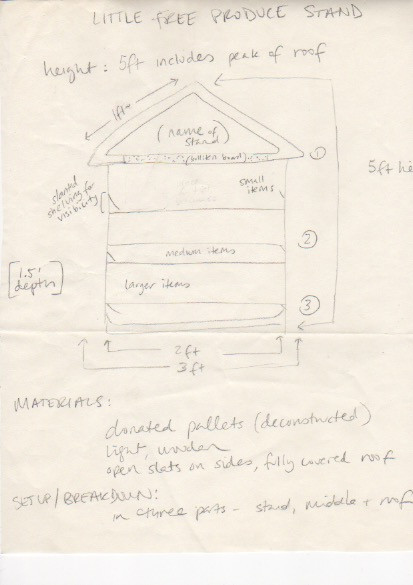 LITTLE FREE PRODUCE STAND
height: 5ft includes peak of roof
1ft
(name of
stand)
①
5ft he
slanted
shelving for
visibility
small
items
②
medium items
[1.5'
depth]
larger items
③
2ft
3ft
MATERIALS:
donated pallets (deconstructed)
light, wooden
open slats on sides, fully covered roof
SETUP/BREAKDOWN:
in three parts – stand, middle + roof